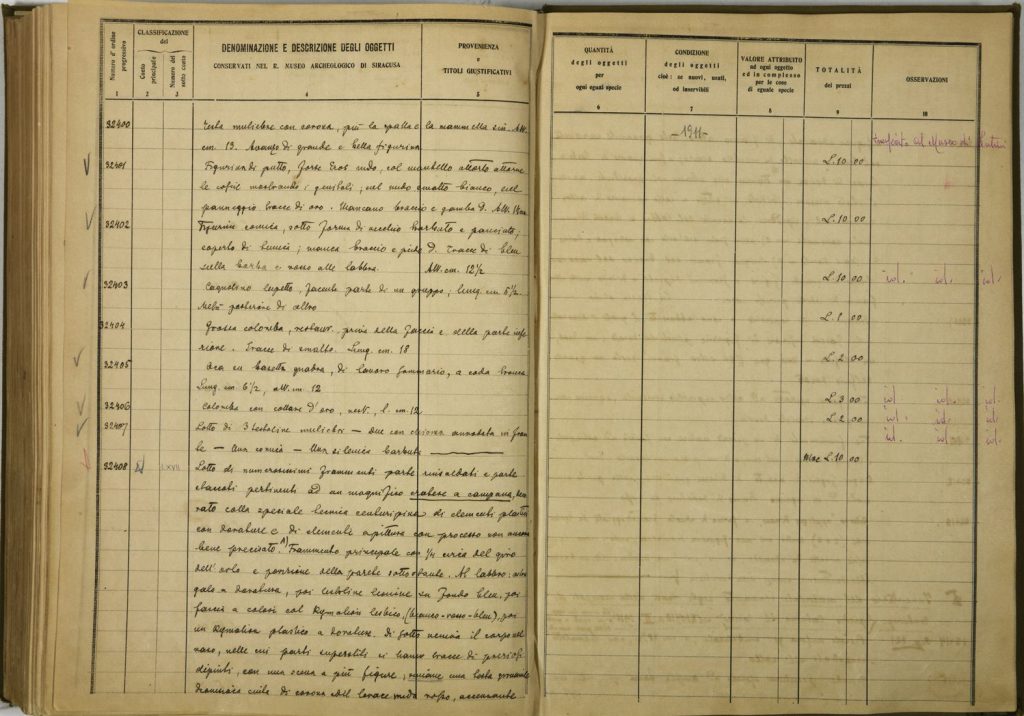 Numero d'ordine progressivo
CLASSIFICAZIONE del
Costo principale
Numero del sotto costo
DENOMINAZIONE E DESCRIZIONE DEGLI OGGETTI
CONSERVATI NEL R. MUSEO ARCHEOLOGICO DI SIRACUSA
PROVENIENZA
e
TITOLI GIUSTIFICATIVI
1 2 3 4 5
32400 Testa muliebre con corona, più la spalla e la mammella sin. Alt.
cm. 13. Avanzo di grande e bella figurina
32401 Figurina di putto, forse Eros nudo, col mantello attorto attorno
le coscie mostrando i genitali; nel nudo smalto bianco, nel
panneggio tracce di oro. Mancano braccio e gamba d. Alt.
32402 Figurina comica, sotto forma di vecchio barbuto e panciuto,
coperto di tunica; manca braccio e piede d. Tracce di bleu
nella barba e rosso alle labbra. Alt. cm. 12½
32403 Cagnolino lupetto, facente parte di un gruppo; lung. cm
Metà posteriore di altro
32404 Grossa colomba, restaur. priva della faccia e della parte infe-
riore. Tracce di smalto. Lung. cm. 18
32405 Oca su basetta quadra, di lavoro sommario, a coda tronca
Lung. cm. 6½, alt. cm. 12
32406 Colomba con collare d'oro, rest. l. cm. 12
32407 Lotto di 3 testoline muliebri — due con chioma annodata in fron-
te — Una comica — Una silenica barbuta
32408 LXVII Lotto di numerosissimi frammenti parte rinsaldati e parte
staccati pertinenti ad un magnifico cratere a campana,
rato colla speciale tecnica centuripina di elementi plastici
con dorature e di elementi a pittura con processo non ancora
bene precisato. A) Frammento principale con 1/4 circa del giro
dell'orlo e porzione della parete sottostante. Al labbro:
a doratura, poi testoline leonine su fondo bleu, poi
fascia a colori col Kymation lesbico, (bianco-rosso-bleu), poi
un Kymation plastico a dorature. Di sotto veniva il corpo del
vaso, nelle cui parti superstiti si hanno tracce di
dipinti, con una scena a più figure, rimane una testa giovanile
cinta di corona del torace nudo rosso, accennante
QUANTITÀ
degli oggetti
per
ogni eguali specie
CONDIZIONE
degli oggetti
cioè: se nuovi, usati,
od inservibili
VALORE ATTRIBUITO
ad ogni oggetto
ed in complesso
per le cose
di eguale specie
TOTALITÀ
dei prezzi
OSSERVAZIONI
6 7 8 9 10
-1911-
trasferita al Museo di Lentini
L. 10 00
L. 10 00
L. 10 00 id. id. id.
L. 1 00
L. 2 00
L. 3 00 id id. id.
L. 2 00 id. id. id.
id. id. id.
L. 10 00